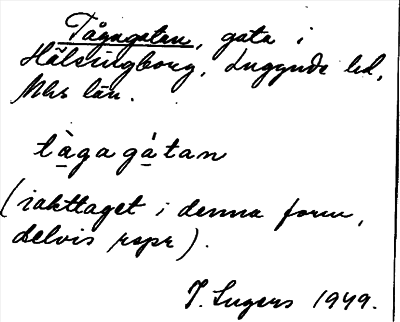 Tågagatan, gata i
Hälsingborg, Luggude hd,
Mhs län.
tàgagátan
(iakttaget i denna form,
delvis rspr).
I. Ingers 1949.